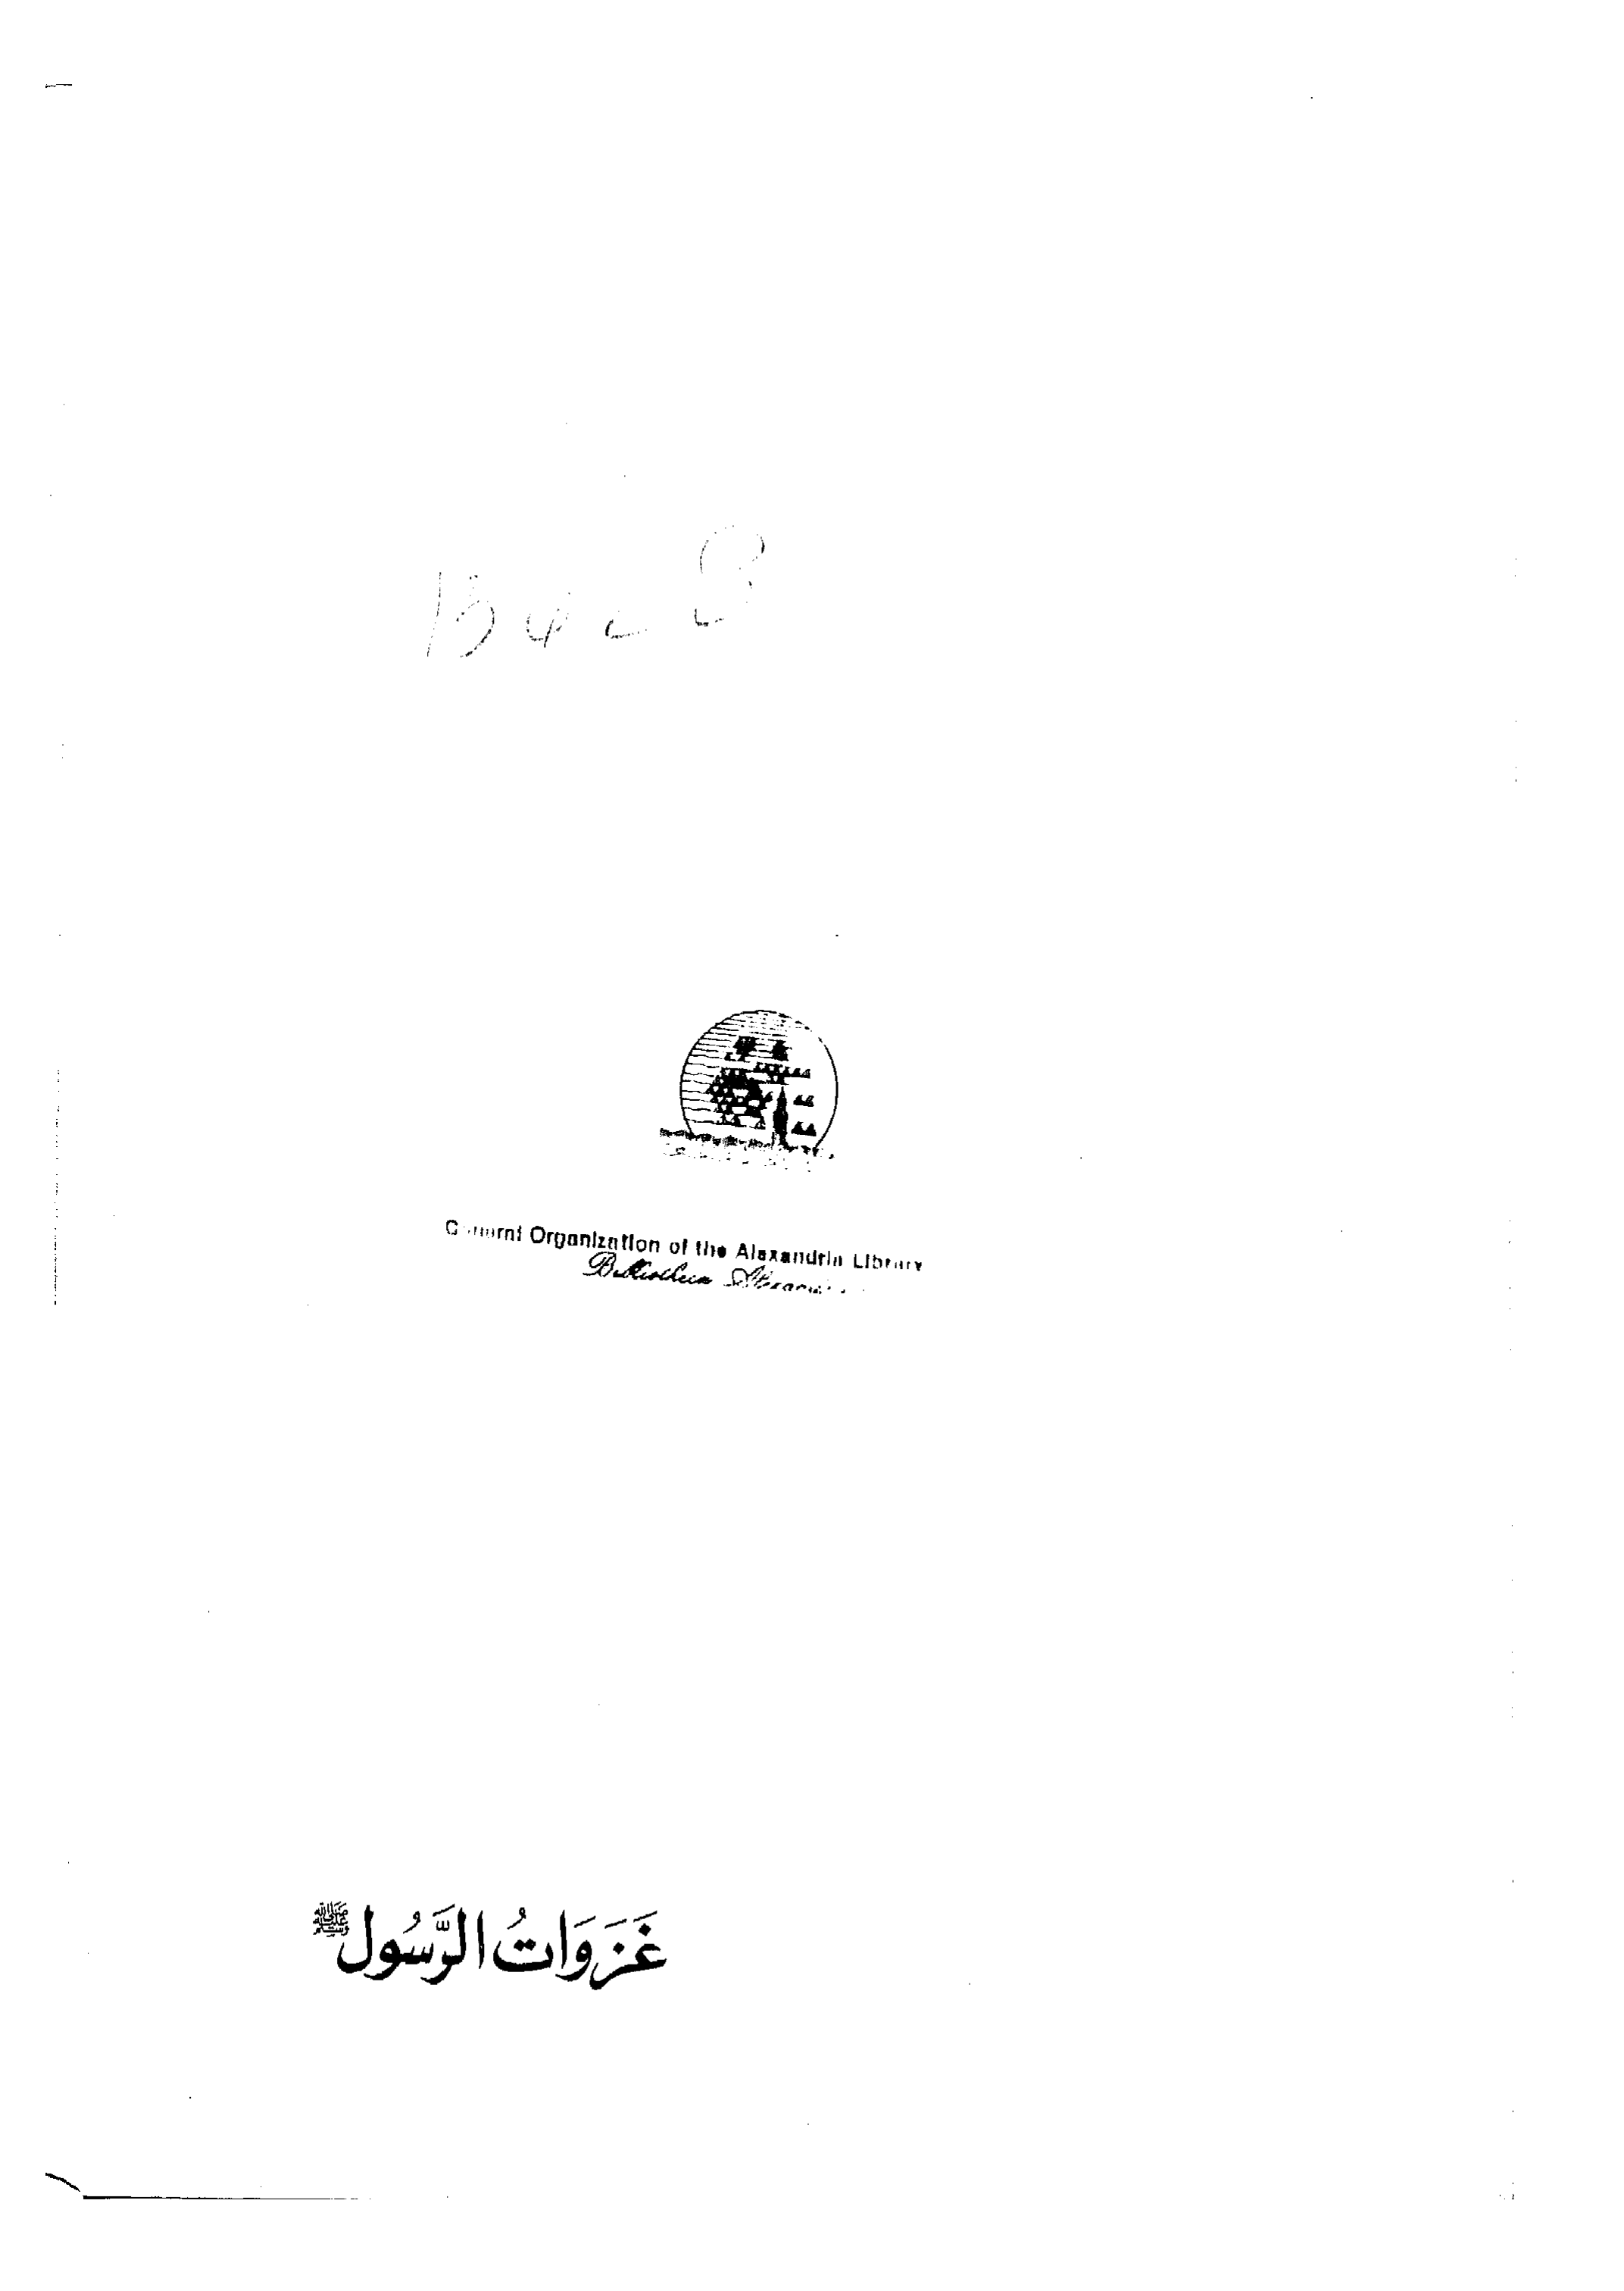 General Organization of the Alexandria Library
Bibliotheca Alexandrina
غَزَوَاتُ الرَّسُول ﷺ